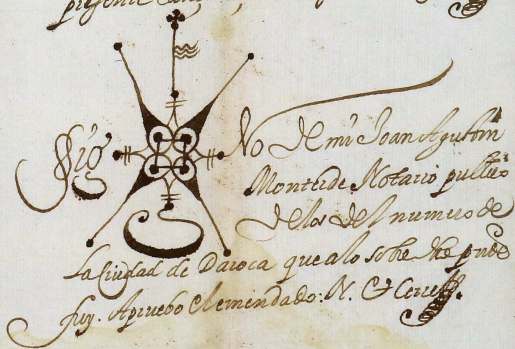 presente
Sig No de mi Joan Agustin
Monterde Notario publico
de los del numero de
la Ciudad de Daroca que a lo sobre dho prste
fuy. Apruebo el emendado: N. Et Cerre.